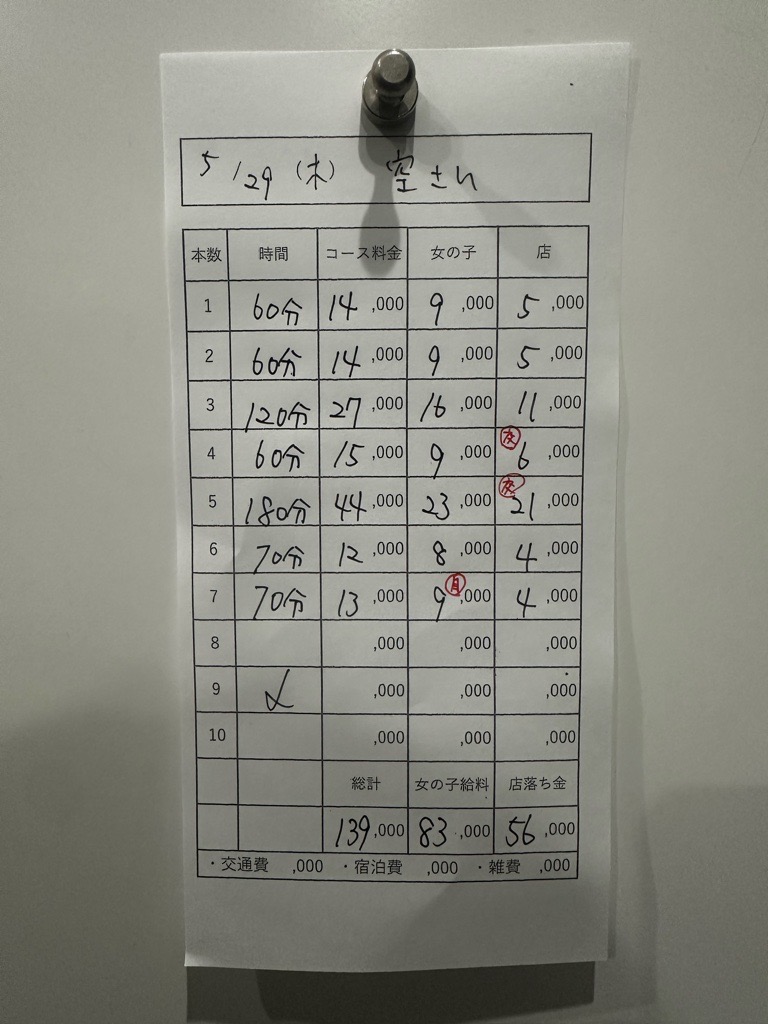 5/29(木) 空さん
本数 時間 コース料金 女の子 店
1 60分 14,000 9,000 5,000
2 60分 14,000 9,000 5,000
3 120分 27,000 16,000 11,000
4 60分 15,000 9,000 6,000
5 180分 44,000 23,000 21,000
6 70分 12,000 8,000 4,000
7 70分 13,000 9,000 月 4,000
8 ,000 ,000 ,000
9 〆 ,000 ,000 ,000
10 ,000 ,000 ,000
総計 女の子給料 店落ち金
139,000 83,000 56,000
・交通費 ,000 ・宿泊費 ,000 ・雑費 ,000